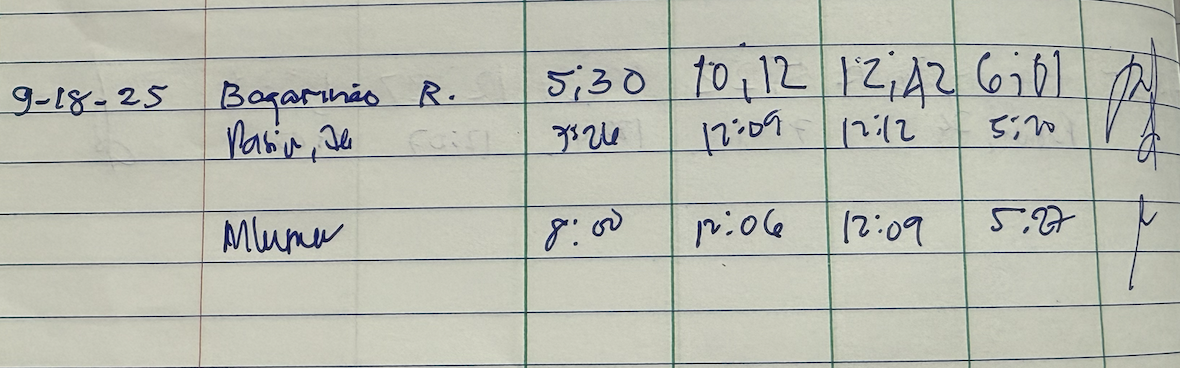 9-18-25 Bagarinao R. 5:30 10:12 12:42 6:01
7:26 12:09 12:12 5:20
8:00 12:06 12:09 5:27